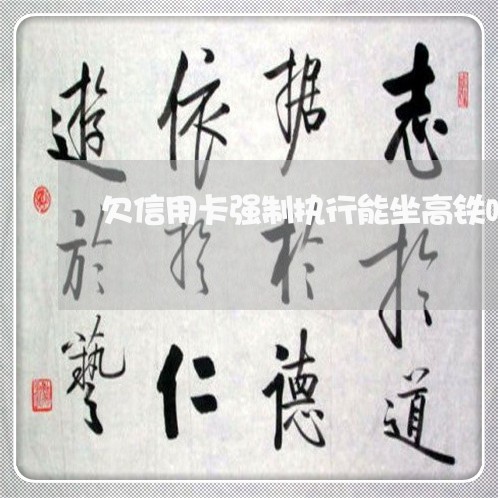 志於道
据於德
依於仁
遊於藝
欠信用卡强制执行能坐高铁